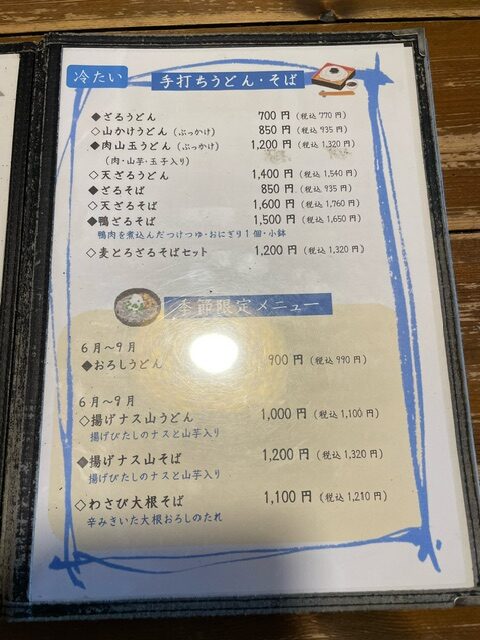 冷たい 手打ちうどん・そば
◆ざるうどん 700円(税込770円)
◇山かけうどん(ぶっかけ) 850円(税込935円)
◆肉山玉うどん(ぶっかけ) 1,200円(税込1,320円)
(肉・山芋・玉子入り)
◇天ざるうどん 1,400円(税込1,540円)
◆ざるそば 850円(税込935円)
◇天ざるそば 1,600円(税込1,760円)
◆鴨ざるそば 1,500円(税込1,650円)
鴨肉を煮込んだつけつゆ・おにぎり1個・小鉢
◇麦とろざるそばセット 1,200円(税込1,320円)
季節限定メニュー
6月〜9月
◆おろしうどん 900円(税込990円)
6月〜9月
◇揚げナス山うどん 1,000円(税込1,100円)
揚げびたしのナスと山芋入り
◆揚げナス山そば 1,200円(税込1,320円)
揚げびたしのナスと山芋入り
◇わさび大根そば 1,100円(税込1,210円)
辛みきいた大根おろしのたれ